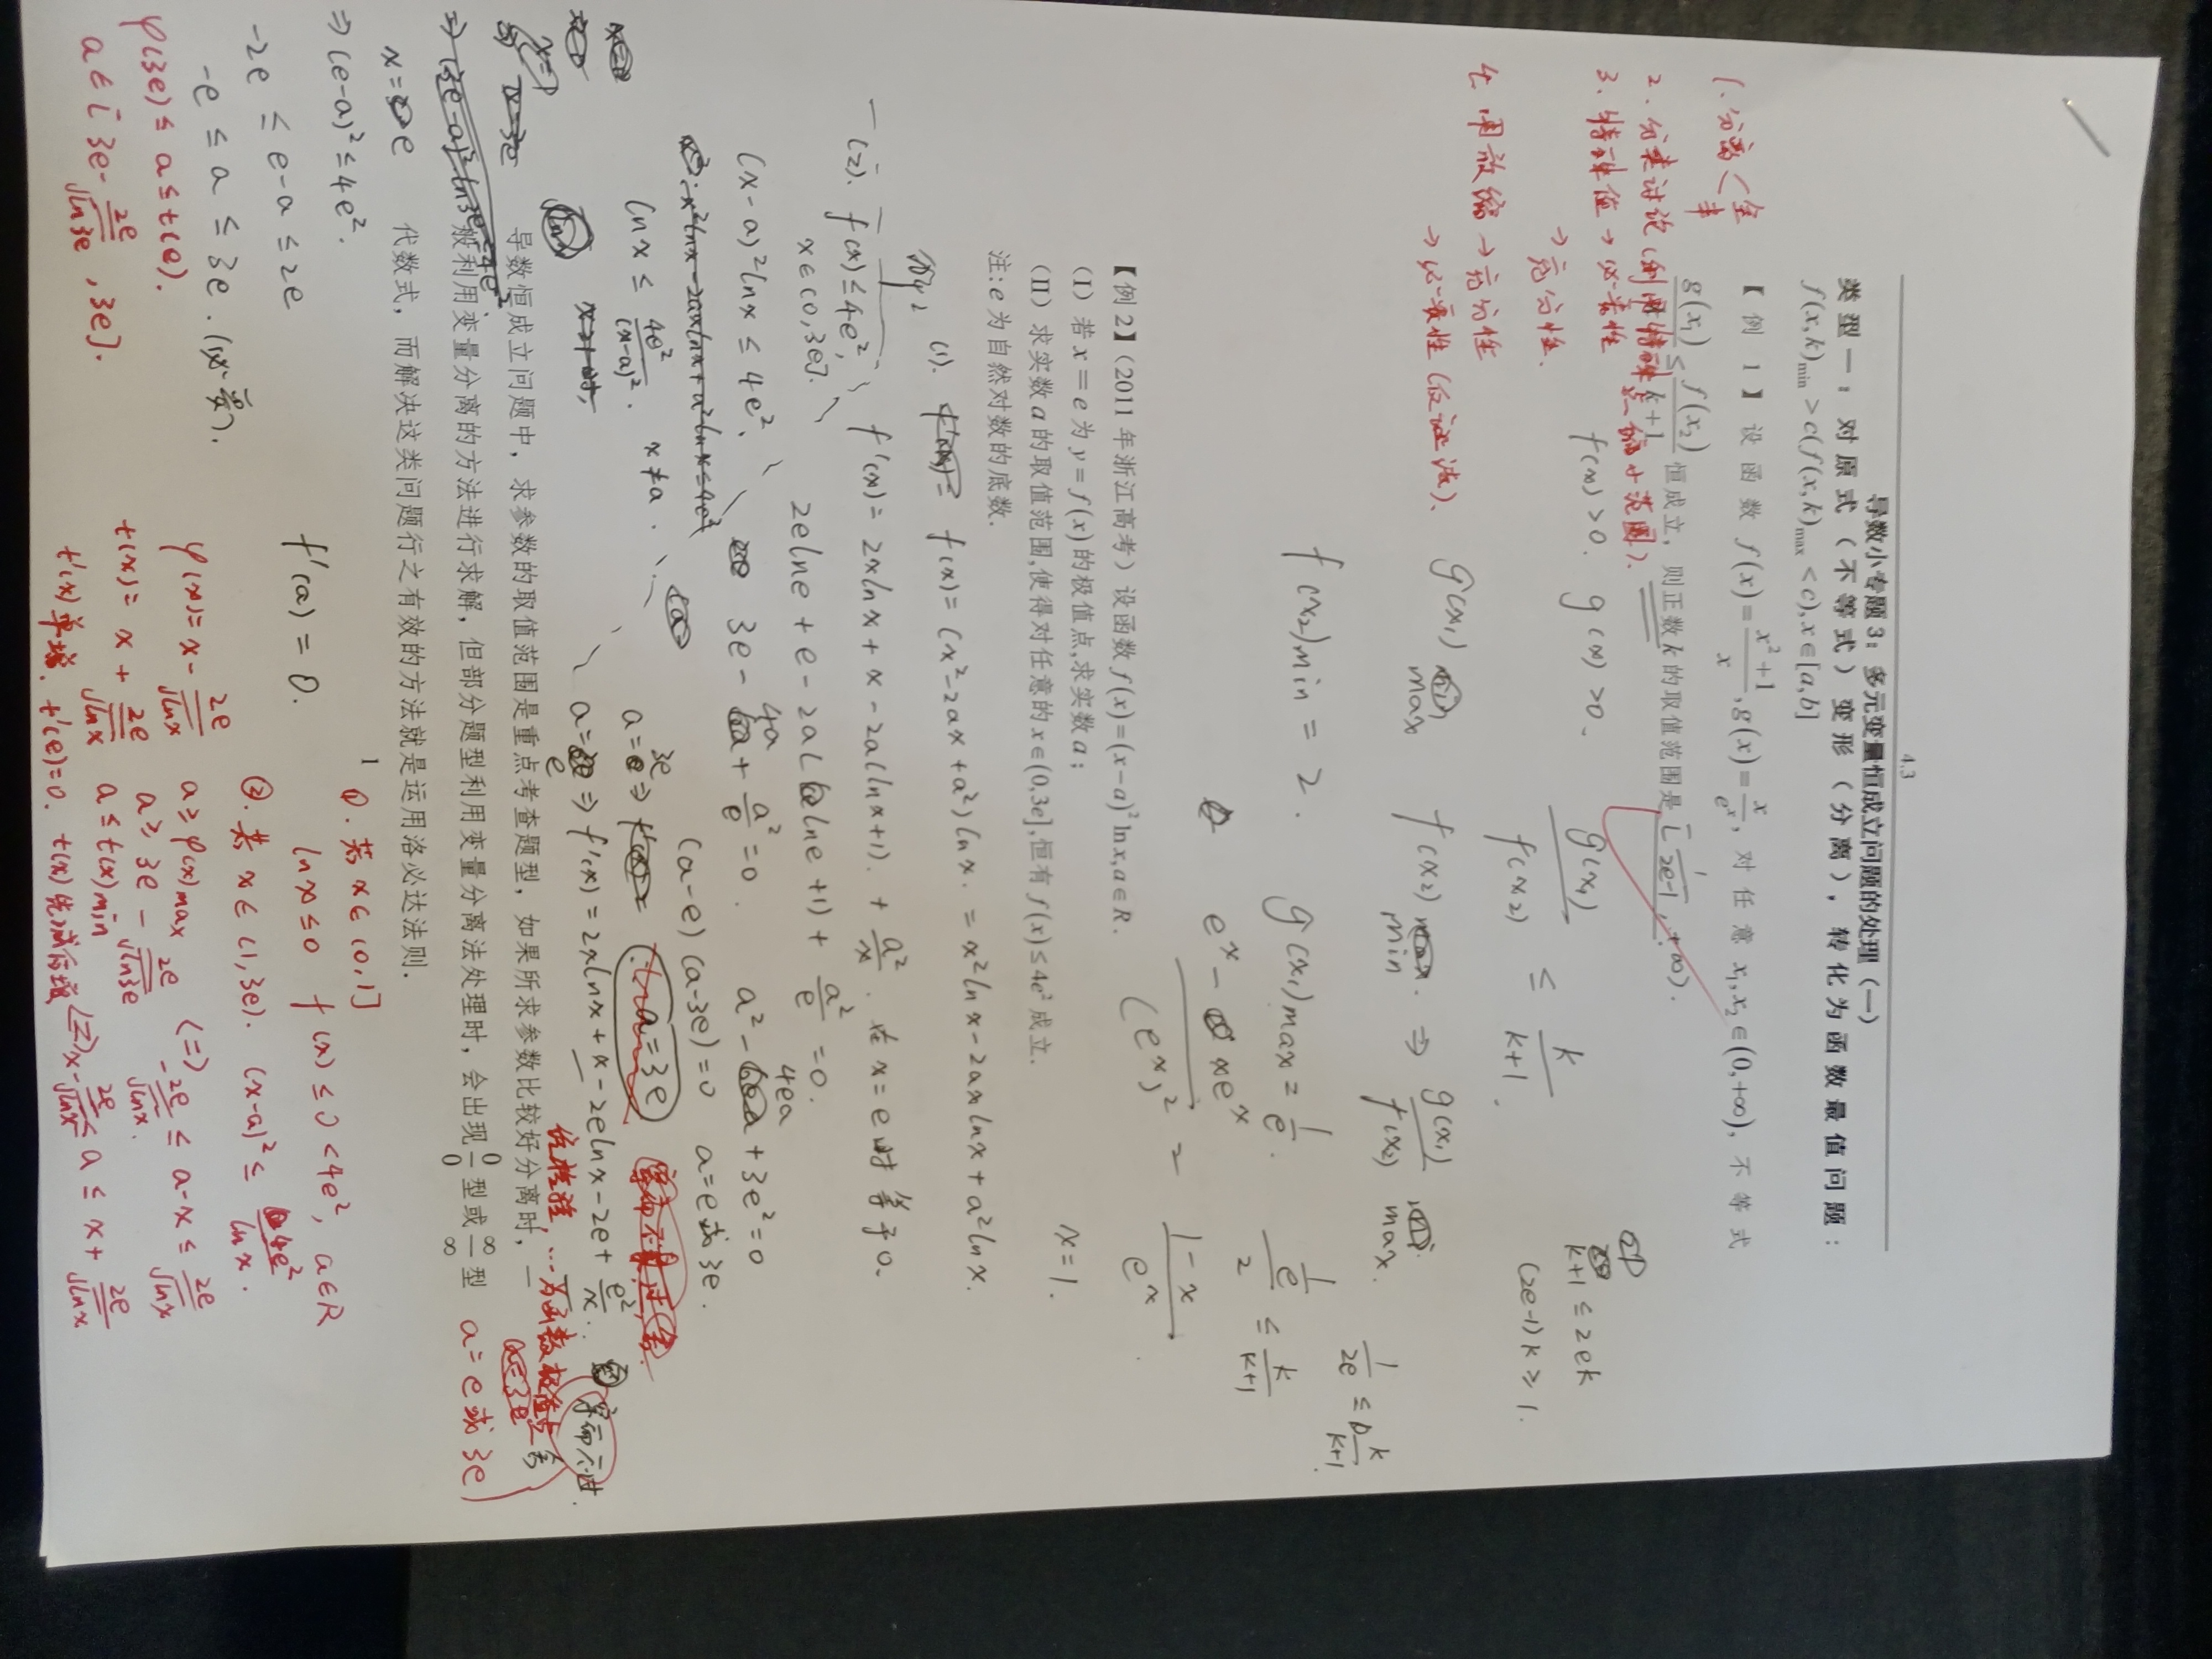 4.3
导数小专题 3：多元变量恒成立问题的处理（一）
类型一：对原式（不等式）变形（分离），转化为函数最值问题：
f(x,k)min > c(f(x,k)max < c), x∈[a,b]
【例 1】设函数 f(x)=(x²+1)/x, g(x)=x/eˣ, 对任意 x₁,x₂∈(0,+∞), 不等式
g(x₁)/k ≤ f(x₂)/(k+1) 恒成立，则正数 k 的取值范围是 [1/(2e-1), +∞).
1. 分离 < 全 半
2. 分类讨论 (利用特殊点缩小范围).
3. 特殊值 → 必要性
→ 充分性.
4. 用放缩 → 充分性
→ 必要性 (反证法).
f(x)>0. g(x)>0.
g(x₁)/f(x₂) ≤ k/(k+1).
k+1 ≤ 2ek
(2e-1)k ≥ 1.
g(x₁) max f(x₂) min ⇒ g(x₁)/f(x₂) max.
1/2e ≤ k/(k+1).
f(x₂)min = 2. g(x₁)max = 1/e.
(1/e)/2 ≤ k/(k+1)
(eˣ - xeˣ)/(eˣ)² = (1-x)/eˣ.
x=1.
【例 2】（2011 年浙江高考）设函数 f(x)=(x-a)² ln x, a∈R.
（Ⅰ）若 x=e 为 y=f(x) 的极值点,求实数 a；
（Ⅱ）求实数 a 的取值范围,使得对任意的 x∈(0,3e],恒有 f(x)≤4e² 成立.
注: e 为自然对数的底数.
解: (1). f(x)= (x²-2ax+a²) ln x. = x² ln x - 2ax ln x + a² ln x.
f'(x)= 2x ln x + x - 2a(ln x+1). + a²/x. 在 x=e 时 等于 0.
2e ln e + e - 2a(ln e +1) + a²/e = 0.
3e - 4a + a²/e = 0. a² - 4ea + 3e² = 0
(a-e)(a-3e)=0 a=e或3e.
a=3e ⇒ a=3e
a=e ⇒ f'(x)=2x ln x + x - 2e ln x - 2e + e²/x. 穿而不过.
舍
经检验, … 为函数极值点
a=e 或 3e
(2). f(x)≤4e²,
x∈(0,3e].
(x-a)² ln x ≤ 4e².
ln x ≤ 4e²/(x-a)². x≠a.
导数恒成立问题中，求参数的取值范围是重点考查题型，如果所求参数比较好分离时，一
般利用变量分离的方法进行求解，但部分题型利用变量分离法处理时，会出现 0/0 型或 ∞/∞ 型
代数式，而解决这类问题行之有效的方法就是运用洛必达法则.
1
x= e
⇒ (e-a)² ≤ 4e².
-2e ≤ e-a ≤ 2e
-e ≤ a ≤ 3e. (必要).
φ(3e) ≤ a ≤ t(e).
a∈[3e - 2e/√ln3e, 3e].
f'(a) = 0.
①. 若 x∈(0,1]
ln x ≤ 0 f(x) ≤ 0 < 4e², a∈R
②. 若 x∈(1,3e). (x-a)² ≤ 4e²/ln x.
⇔ -2e/√ln x ≤ a-x ≤ 2e/√ln x
⇔ x - 2e/√ln x ≤ a ≤ x + 2e/√ln x
φ(x)= x - 2e/√ln x a ≥ φ(x)max
a ≥ 3e - 2e/√ln3e
t(x)= x + 2e/√ln x a ≤ t(x)min
t'(x) 单增. t'(e)=0. t(x) 先减后增